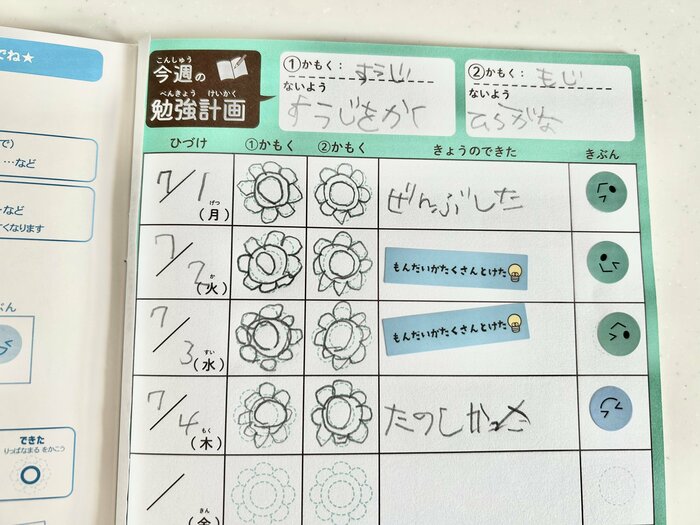 でね★
で)
…など
など
くなります
ぶん
できた
りっぱなまる をかこう
こんしゅう
今週の
べんきょう けいかく
勉強計画
①かもく: すうじ
ないよう
すうじをかく
②かもく: もじ
ないよう
ひらがな
ひづけ ①かもく ②かもく きょうのできた きぶん
7/1 げつ (月) ぜんぶした
7/2 か (火) もんだいがたくさんとけた
7/3 すい (水) もんだいがたくさんとけた
7/4 もく (木) たのしかった
/ きん (金)